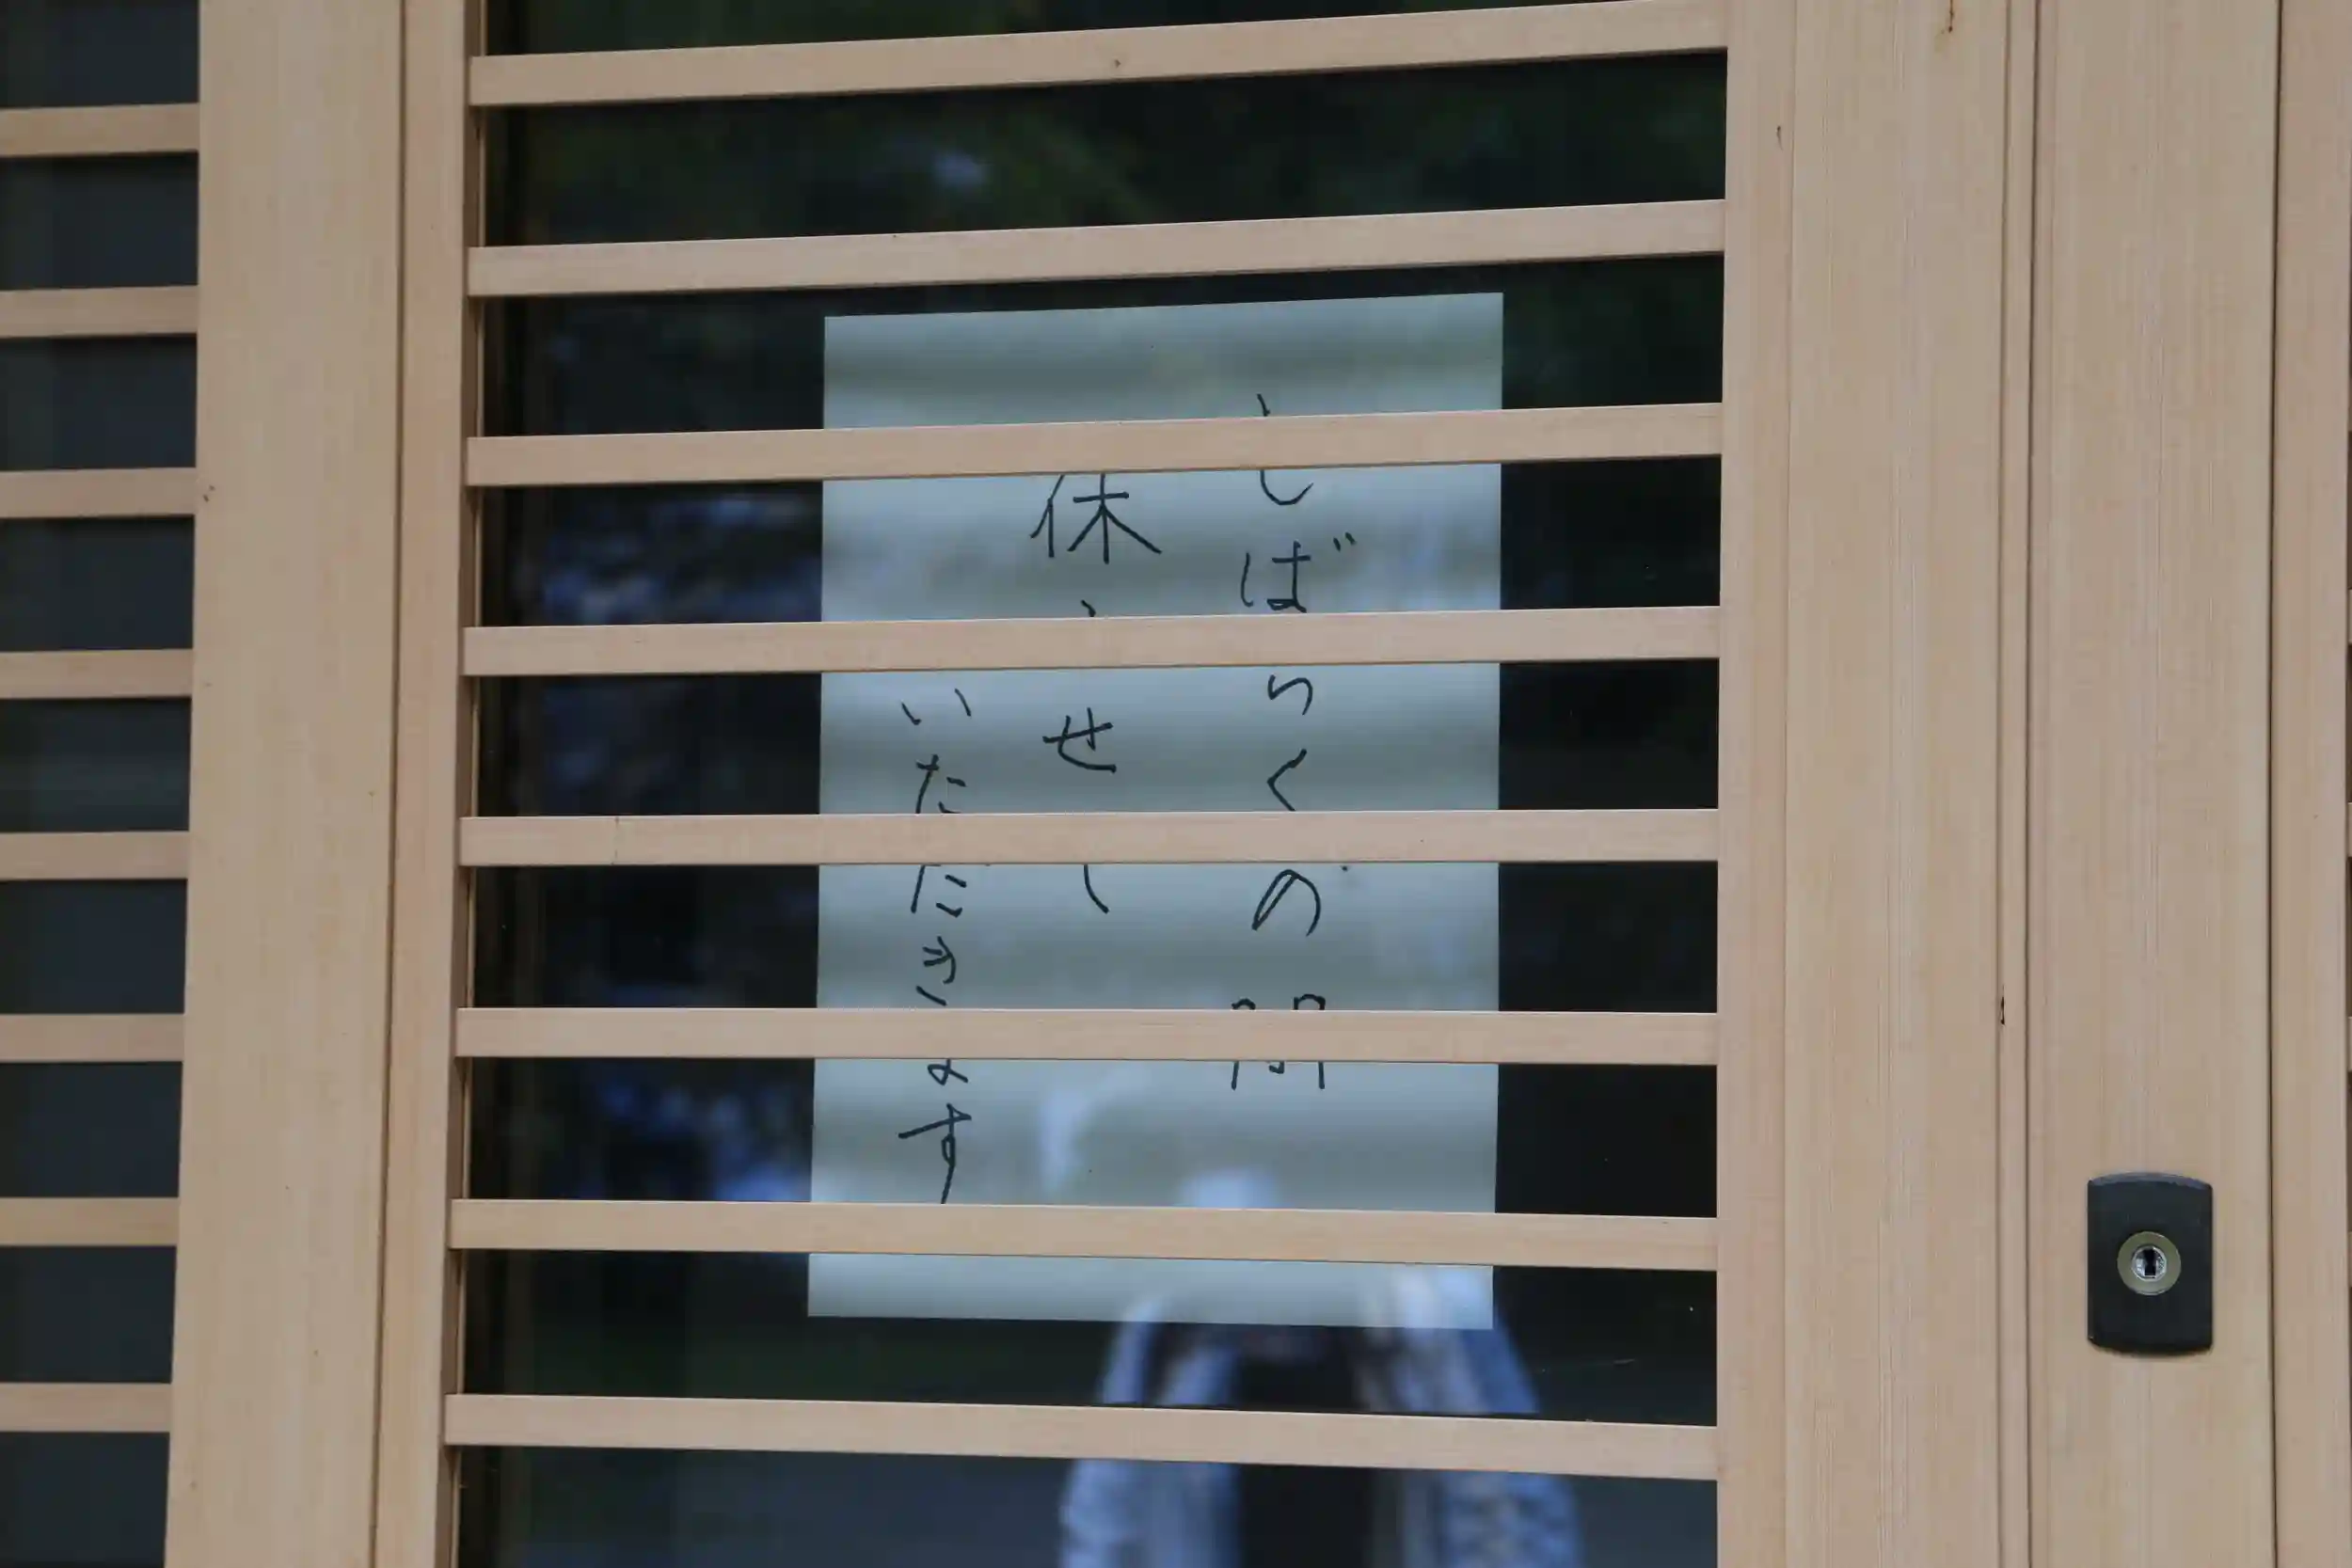 しばらくの間
休ませて
いただきます